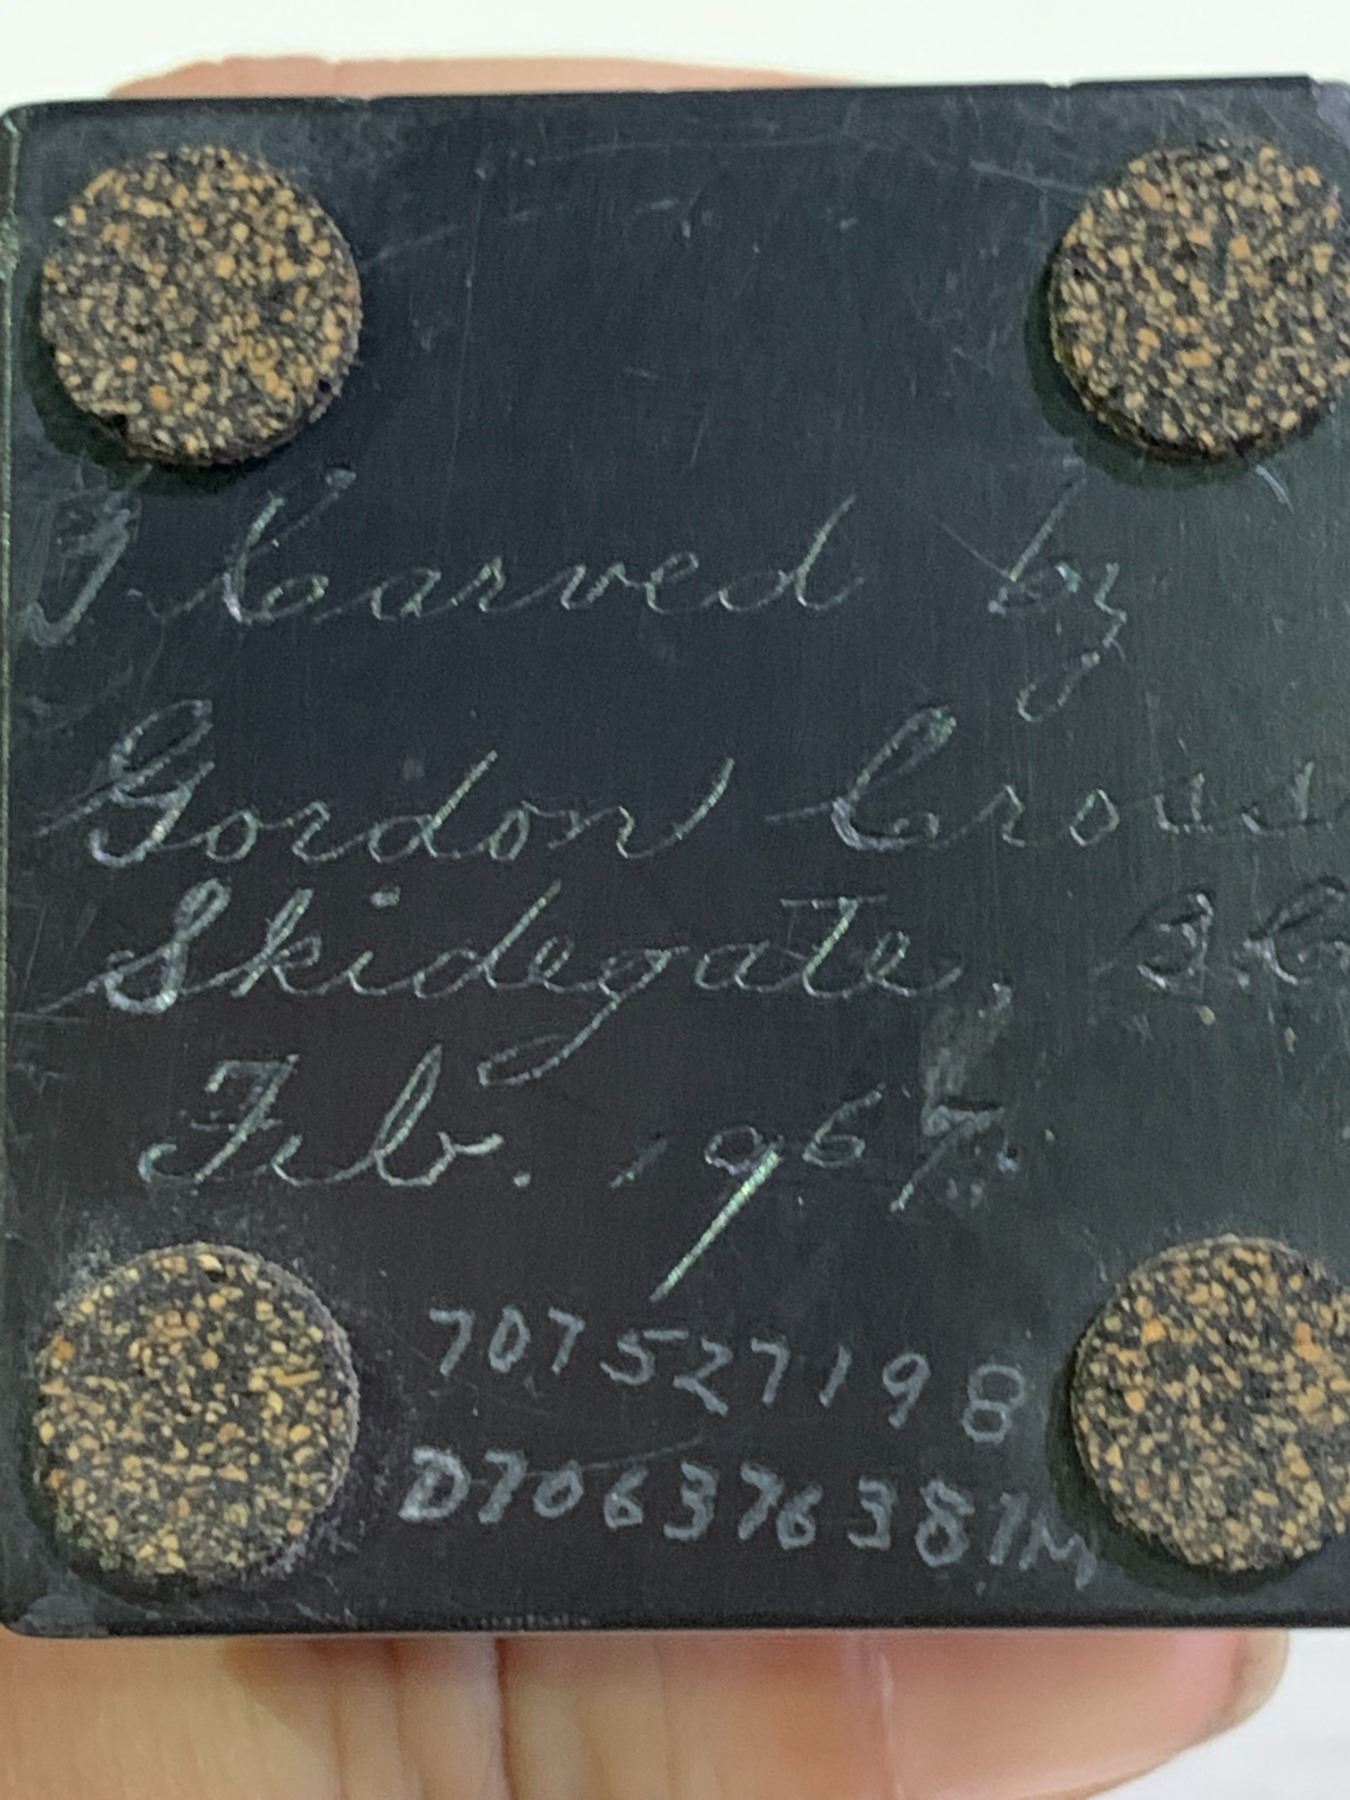 Carved by
Gordon Cross
Skidegate, B.C.
Feb. 1967.
707527198
D706376387M